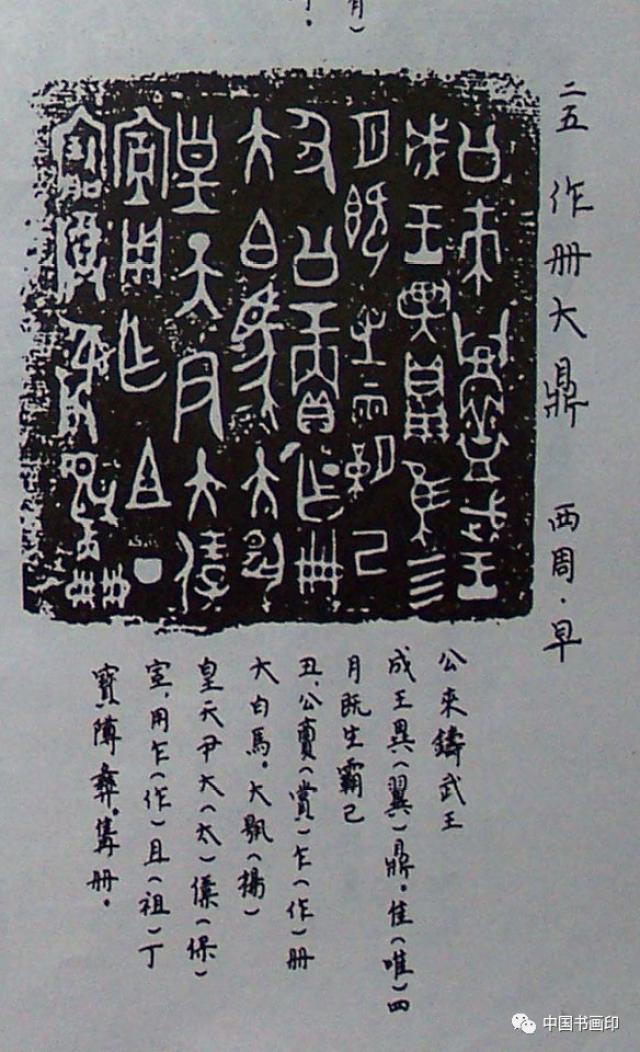 二五 作册大鼎 西周·早
公來鑄武王
成王異(翼)鼎。隹(唯)四
月既生霸己
丑,公賞(賞)乍(作)册
大白馬。大揚(揚)
皇天尹大(太)保(保)
室,用乍(作)且(祖)丁
寶障彝。雋册。
中国书画印